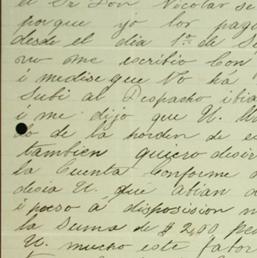 el Sr Don Nicolas se
porque yo los pag
desde el dia 1º de Se
no me escribio Con
i medise que No ha
Subi al Despacho i bia
i me dijo que U. 
do de la horden de es
tambien quiero desir
la Cuenta Conforme a
desia U. que abian a
i poeso a disposision m
la Suma de $ 2400 pe
U. mucho este fabor